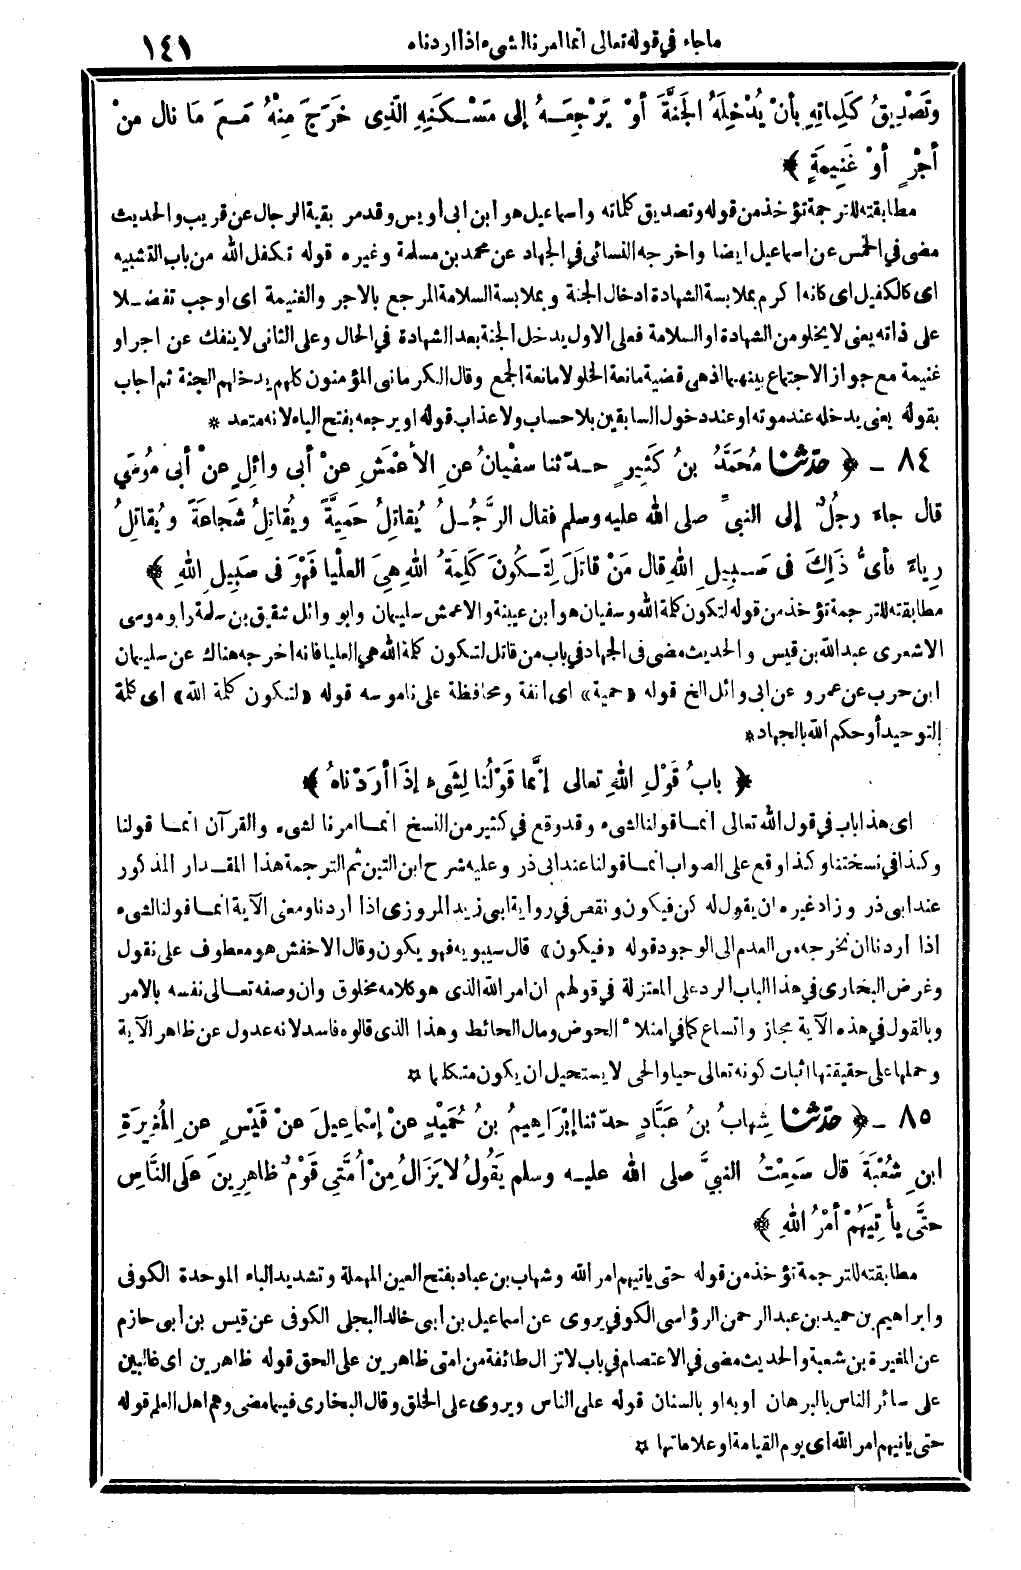 ما جاء في قوله تعالى انما امرنا لشيء اذا اردناه ١٤١
وَتَصْدِيقُ كَلِمَاتِهِ بِأَنْ يُدْخِلَهُ الجَنَّةَ أَوْ يَرْجِعَهُ إِلى مَسْكَنِهِ الَّذِى خَرَجَ مِنْهُ مَعَ مَا نال مِنْ
أَجْرٍ أَوْ غَنِيمَةٍ ﴾
مطابقته للترجمة تؤخذ من قوله وتصديق كلماته واسماعيل هو ابن ابى أويس وقد مر بقية الرجال عن قريب والحديث
مضى في الخمس عن اسماعيل ايضا واخرجه النسائى في الجهاد عن محمد بن مسلمة وغيره قوله تكفل الله من باب التشبيه
اى كالكفيل اى كانه اكرم بملابسة الشهادة ادخال الجنة وبملابسة السلامة المرجع بالاجر والغنيمة اى اوجب تفضلا
على ذاته يعنى لا يخلو من الشهادة او السلامة فعلى الاول يدخل الجنة بعد الشهادة في الحال وعلى الثانى لا ينفك عن اجر او
غنيمة مع جواز الاجتماع بينهما اذ هى قضية مانعة الخلو لا مانعة الجمع وقال الكرمانى المؤمنون كلهم يدخلهم الجنة ثم اجاب
بقوله يعنى يدخله عند موته او عند دخول السابقين بلا حساب ولا عذاب قوله او يرجعه بفتح الياء لانه متعد *
٨٤ - ﴿ حدّثنا مُحَمَّدُ بنُ كَثِيرٍ حدّثنا سفْيانُ عنِ الأَعْمَشِ عنْ أبى وائِلٍ عنْ أبى مُوسَى
قال جاءَ رجُلٌ إلى النبىِّ صلى الله عليه وسلم فقال الرَّجُلُ يُقاتِلُ حَمِيَّةً ويُقاتِلُ شَجاعَةً ويُقاتِلُ
رِياءً فأىُّ ذَلِكَ فى سَبِيلِ اللهِ قال مَنْ قاتَلَ لِتَكُونَ كَلِمَةُ اللهِ هِىَ العلْيا فَهْوَ فى سَبِيلِ اللهِ ﴾
مطابقته للترجمة تؤخذ من قوله لتكون كلمة الله وسفيان هو ابن عيينة والاعمش سليمان وابو وائل شقيق بن سلمة وابو موسى
الاشعرى عبد الله بن قيس والحديث مضى فى الجهاد في باب من قاتل لتكون كلمة الله هي العليا فانه اخرجه هناك عن سليمان
ابن حرب عن عمرو عن ابى وائل الخ قوله «حمية» اى انفة ومحافظة على ناموسه قوله «لتكون كلمة الله» اى كلمة
التوحيد أو حكم الله بالجهاد *
﴿ بابُ قَوْلِ اللهِ تعالى إنَّما قَوْلُنا لِشَىْءٍ إذَا أرَدْناهُ ﴾
اى هذا باب في قول الله تعالى انما قولنا لشىء وقد وقع في كثير من النسخ انما امرنا لشىء والقرآن انما قولنا
وكذا في نسختنا وكذا وقع على الصواب انما قولنا عند ابى ذر وعليه شرح ابن التين ثم الترجمة هذا المقدار المذكور
عند ابى ذر وزاد غيره ان يقول له كن فيكون ونقص في رواية ابى زيد المروزى اذا اردنا ومعنى الآية انما قولنا لشىء
اذا أردنا ان نخرجه من العدم الى الوجود قوله «فيكون» قال سيبويه فهو يكون وقال الاخفش هو معطوف على نقول
وغرض البخارى في هذا الباب الرد على المعتزلة في قولهم ان امر الله الذى هو كلامه مخلوق وان وصفه تعالى نفسه بالامر
وبالقول في هذه الآية مجاز واتساع كما في امتلاء الحوض ومال الحائط وهذا الذى قالوه فاسد لانه عدول عن ظاهر الآية
وحملها على حقيقتها اثبات كونه تعالى حيا والحى لا يستحيل ان يكون متكلما *
٨٥ - ﴿ حدّثنا شِهابُ بنُ عَبَّادٍ حدّثنا إبْرَاهِيمُ بنُ حُمَيْدٍ عنْ إسْماعِيلَ عنْ قَيْسٍ عنِ المُغِيرَةِ
ابنِ شُعْبَةَ قال سَمِعْتُ النبىَّ صلى الله عليه وسلم يَقُولُ لا يَزَالُ مِنْ أُمَّتِى قَوْمٌ ظاهِرِينَ عَلى النَّاسِ
حتَّى يأْتِيَهُمْ أمْرُ اللهِ ﴾
مطابقته للترجمة تؤخذ من قوله حتى ياتيهم امر الله وشهاب بن عباد بفتح العين المهملة وتشديد الباء الموحدة الكوفى
وابراهيم بن حميد بن عبد الرحمن الرؤاسى الكوفي يروى عن اسماعيل بن أبى خالد البجلى الكوفى عن قيس بن أبى حازم
عن المغيرة بن شعبة والحديث مضى في الاعتصام في باب لا تزال طائفة من امتى ظاهرين على الحق قوله ظاهرين اى غالبين
على سائر الناس بالبرهان او به او بالسنان قوله على الناس ويروى على الخلق وقال البخارى فيما مضى وهم اهل العلم قوله
حتى ياتيهم امر الله اى يوم القيامة او علاماتها *